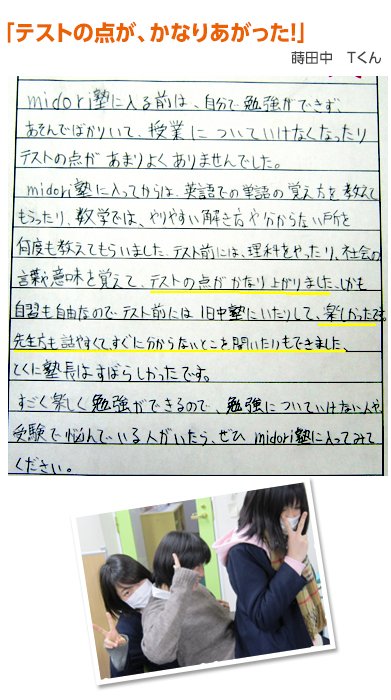 「テストの点が、かなりあがった!」
蒔田中　Tくん
midori塾に入る前は、自分で勉強ができず、
あそんでばかりいて、授業についていけなくなったり
テストの点があまりよくありませんでした。
midori塾に入ってからは、英語での単語の覚え方を教えて
もらったり、数学では、やりやすい解き方や分からない所を
何度も教えてもらいました。テスト前には、理科をやったり、社会の
言葉や意味を覚えて、テストの点がかなり上がりました、しかも
自習も自由なのでテスト前には1日中塾にいたりして、楽しかったです。
先生方も話やすくて、すぐに分からないとこを聞いたりもできました、
とくに塾長はすばらしかったです。
すごく楽しく勉強ができるので、勉強についていけない人や、
受験で悩んでいる人がいたら、ぜひmidori塾に入ってみて
ください。